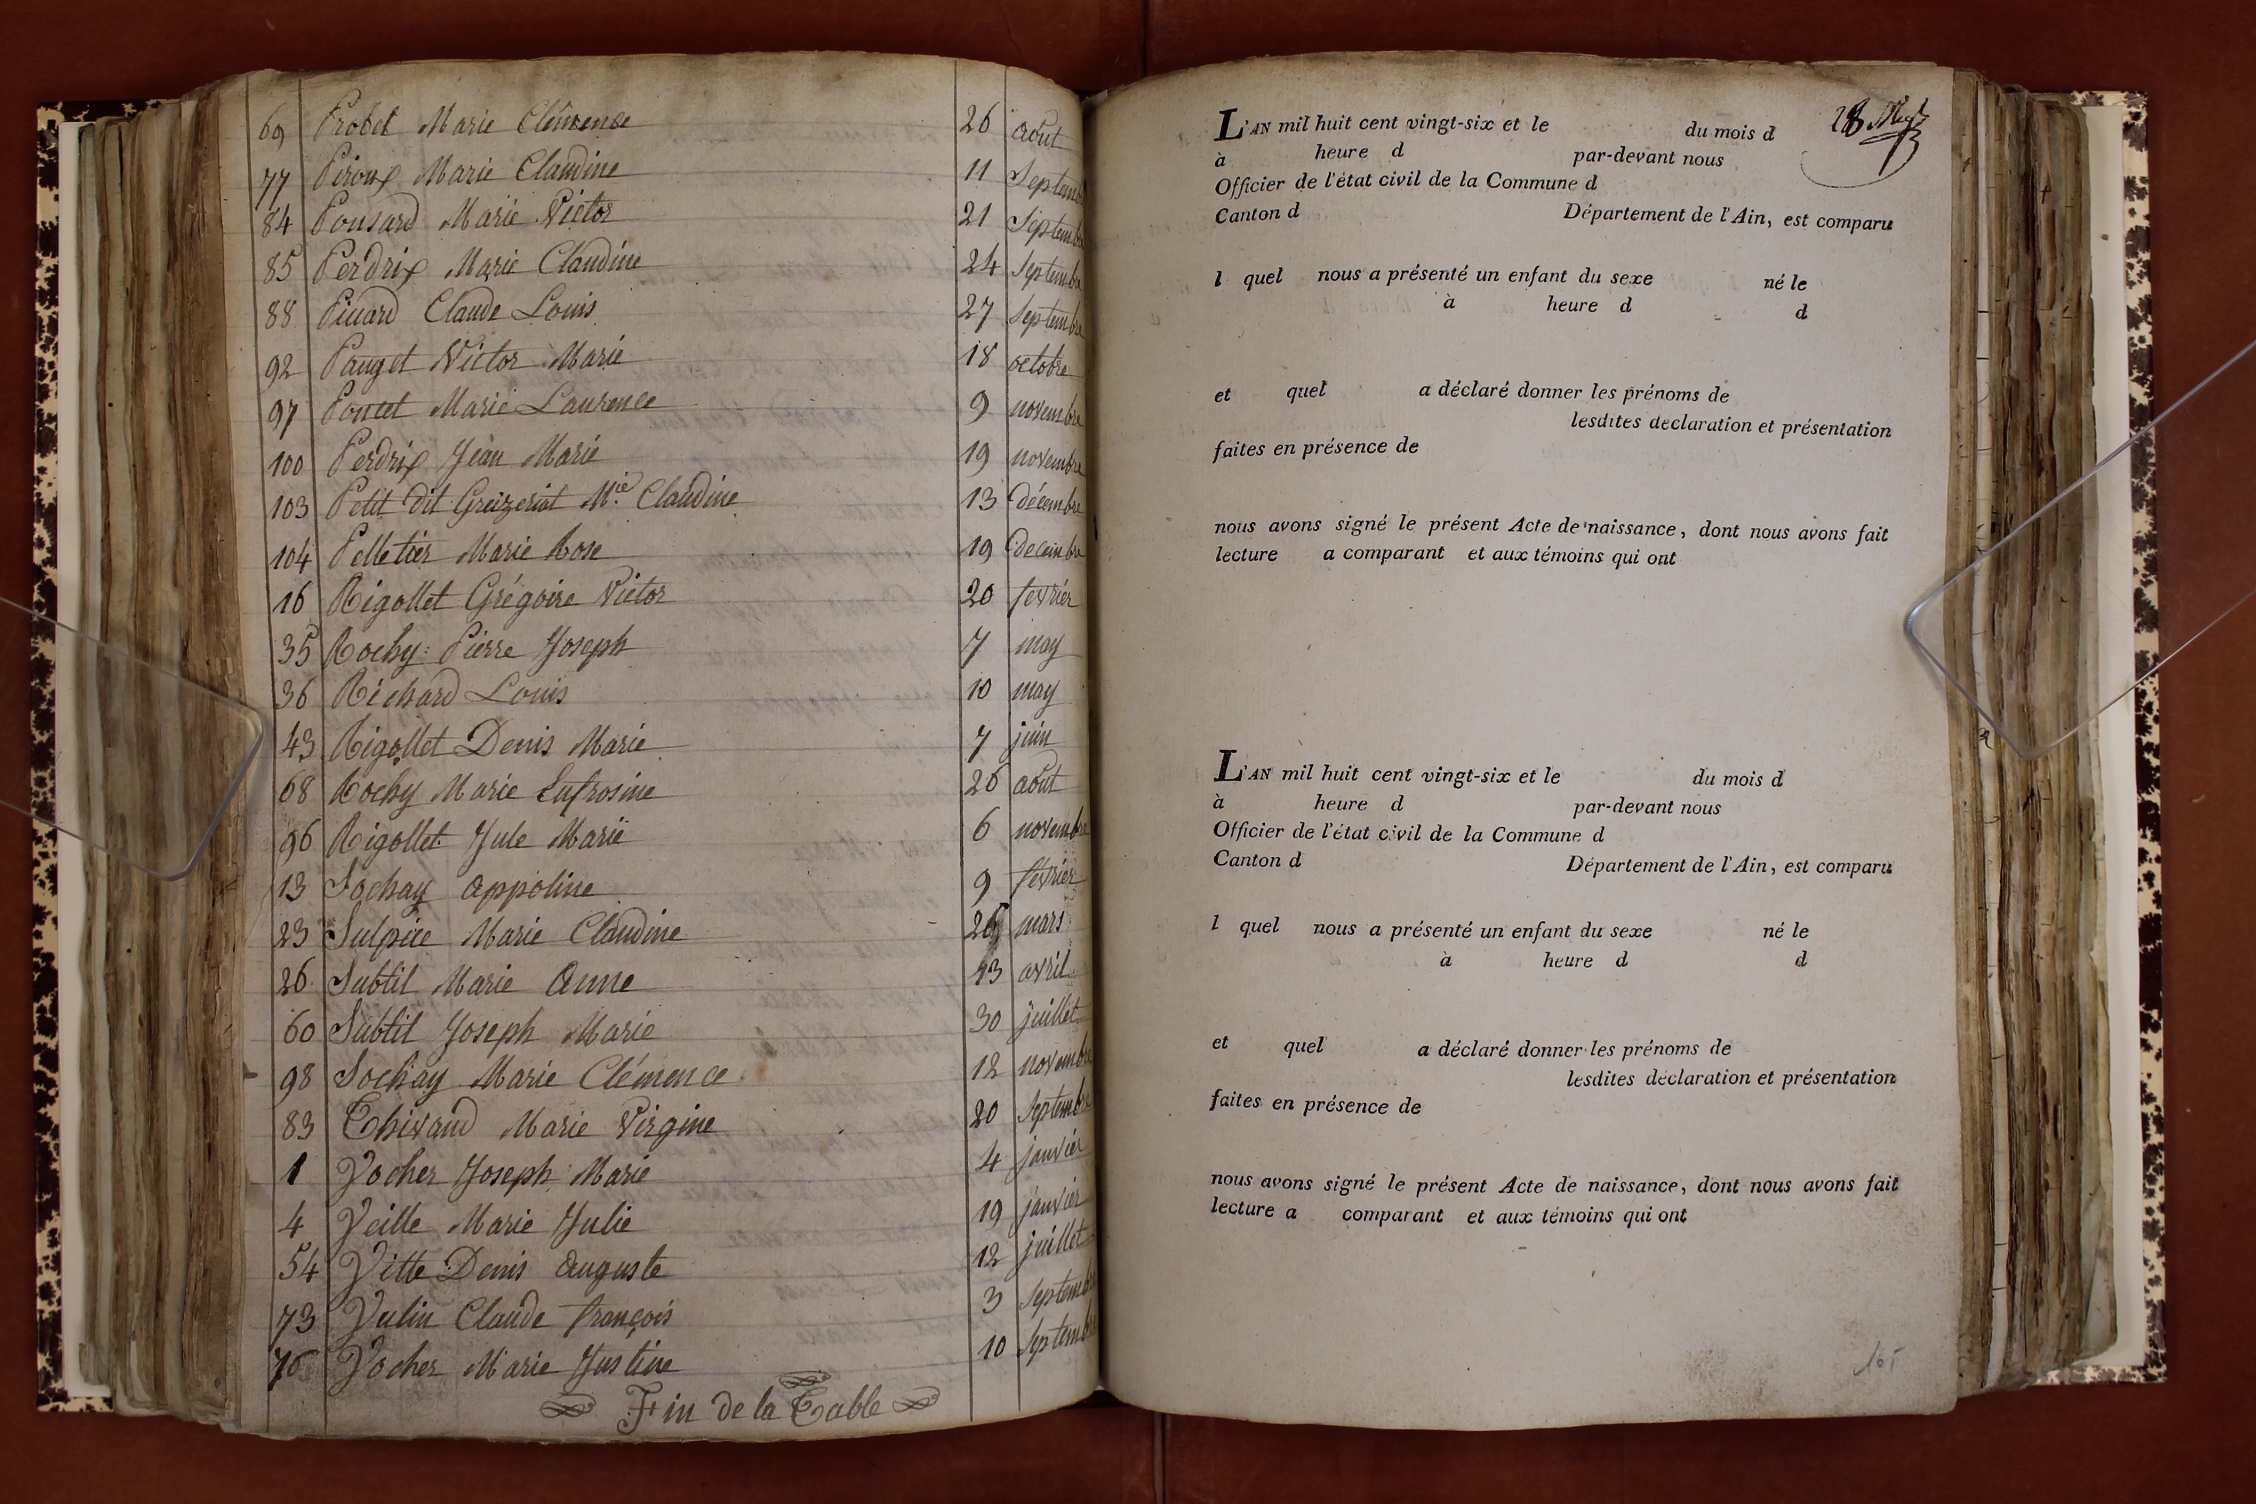 69 Probet Marie Clémence 26 août
77 Piroux Marie Claudine 11 Septemb
84 Ponsard Marie Victor 21 Septembre
85 Perdrix Marie Claudine 24 Septembre
88 Picard Claude Louis 27 Septembre
92 Pauget Victor Marie 18 octobre
97 Poncet Marie Laurence 9 novembre
100 Perdrix Jean Marie 19 novembre
103 Petit dit Greizeriat Mie Claudine 13 décembre
104 Pelletier Marie Rose 19 decembre
16 Rigollet Grégoire Victor 20 fevrier
35 Rochy Pierre Joseph 7 may
36 Richard Louis 10 may
43 Rigollet Denis Marie 7 juin
68 Rochy Marie Eufrosine 26 août
96 Rigollet Jule Marie 6 novembre
13 Sochay appoline 9 février
23 Sulpice Marie Claudine mars
26 Subtil Marie Anne 13 avril
60 Subtil Joseph Marie 30 juillet
98 Sochay Marie Clémence 12 novembre
83 Thivaud Marie Virgine 20 Septembre
1 Vocher Joseph Marie 4 janvier
4 Veille Marie Julie 19 janvier
54 Vitte Denis Auguste 12 juillet
73 Vulin Claude françois 3 Septembre
76 Vocher Marie Justine 10 Septembre
Fin de la Table
L'AN mil huit cent vingt-six et le du mois d
à heure d par-devant nous
Officier de l'état civil de la Commune d
Canton d Département de l'Ain, est comparu
l quel nous a présenté un enfant du sexe né le
à heure d d
et quel a déclaré donner les prénoms de
lesdites declaration et présentation
faites en présence de
nous avons signé le présent Acte de naissance, dont nous avons fait
lecture a comparant et aux témoins qui ont
L'AN mil huit cent vingt-six et le du mois d
à heure d par-devant nous
Officier de l'état civil de la Commune d
Canton d Département de l'Ain, est comparu
l quel nous a présenté un enfant du sexe né le
à heure d d
et quel a déclaré donner les prénoms de
lesdites déclaration et présentation
faites en présence de
nous avons signé le présent Acte de naissance, dont nous avons fait
lecture a comparant et aux témoins qui ont